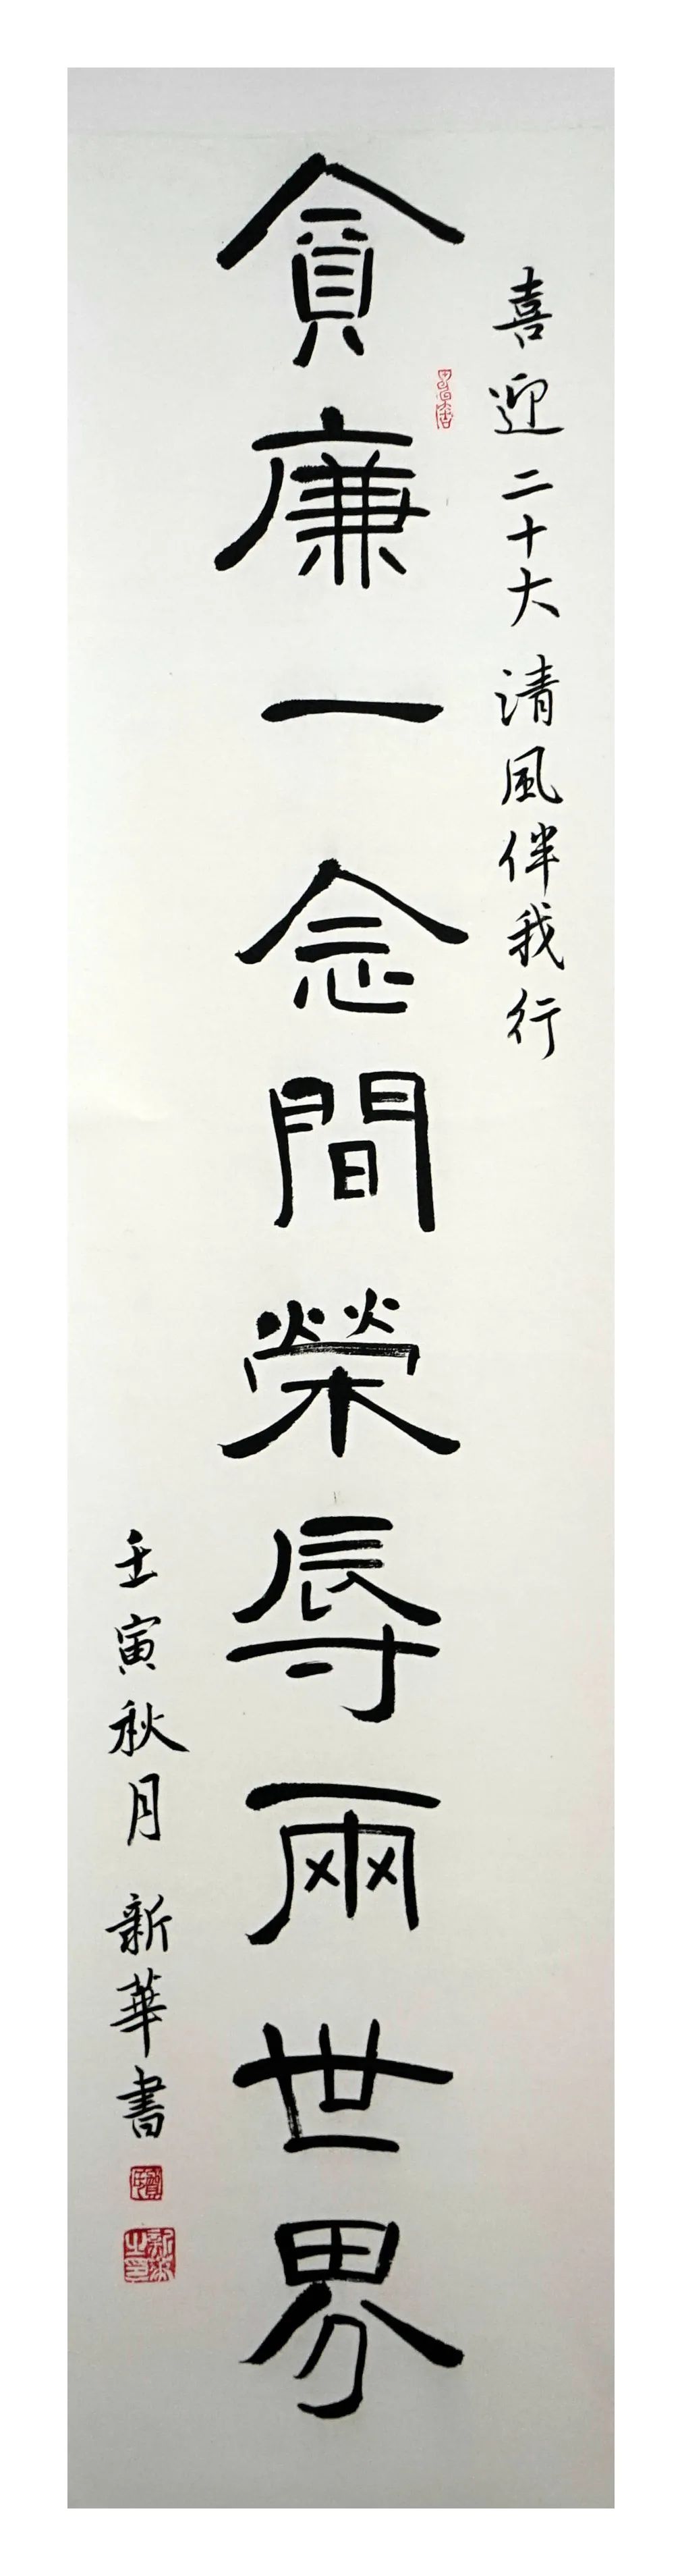 喜迎二十大清風伴我行
貪廉一念間榮辱兩世界
壬寅秋月 新華書